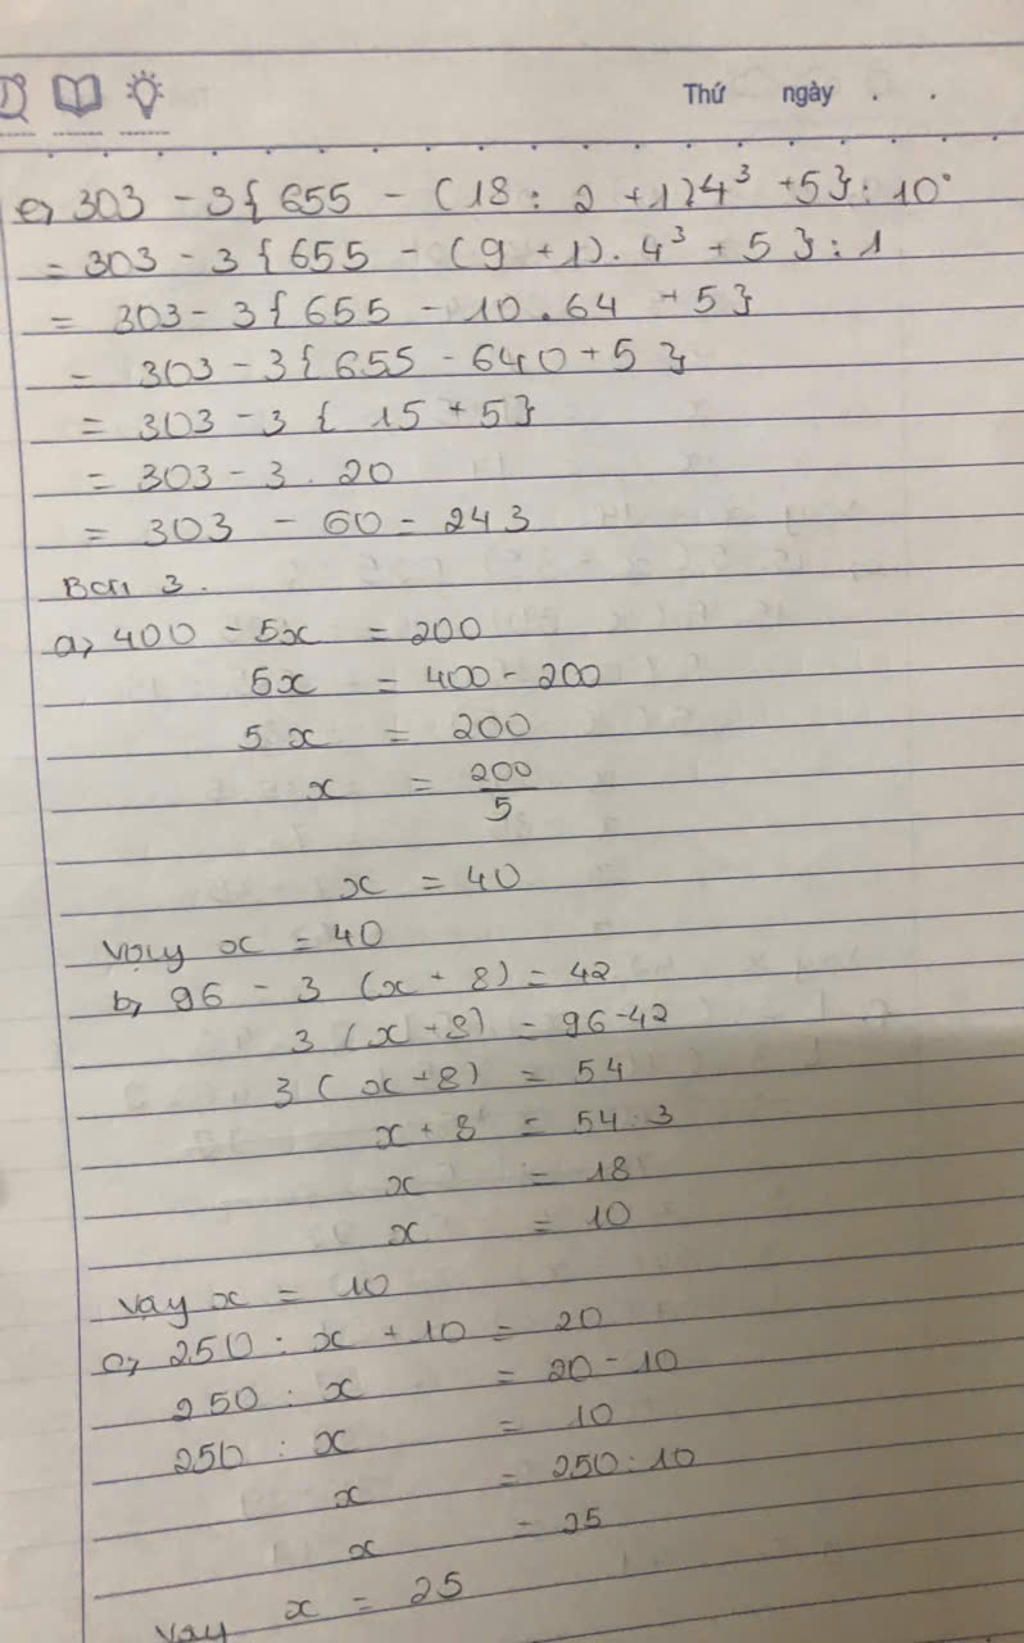 Thứ ngày . .
e, 303 - 3{ 655 - (18 : 2 + 1)4³ + 5} : 10°
= 303 - 3{ 655 - (9 + 1). 4³ + 5 } : 1
= 303 - 3{ 655 - 10 . 64 + 5}
= 303 - 3{ 655 - 640 + 5 }
= 303 - 3 { 15 + 5}
= 303 - 3 . 20
= 303 - 60 = 243
Bài 3.
a, 400 - 5x = 200
5x = 400 - 200
5x = 200
x = 200/5
x = 40
Vậy x = 40
b, 96 - 3 (x + 8) = 42
3 (x + 8) = 96 - 42
3 (x + 8) = 54
x + 8 = 54 : 3
x = 18
x = 10
Vay x = 10
c, 250 : x + 10 = 20
250 : x = 20 - 10
250 : x = 10
x = 250 : 10
x = 25
Vay x = 25